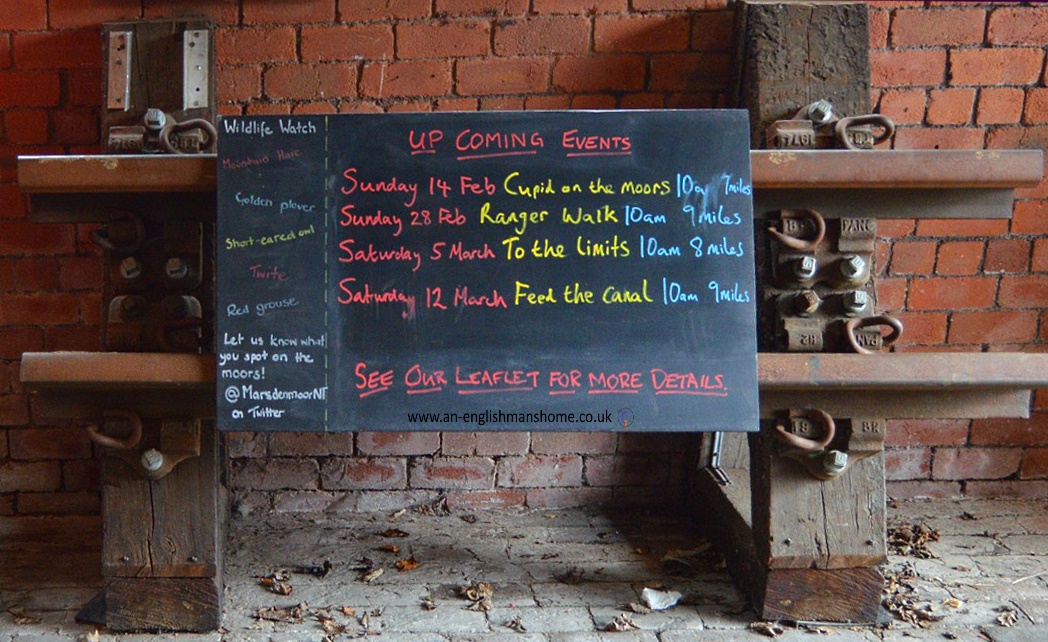 Wildlife Watch
Mountain Hare
Golden plover
Short-eared owl
Twite
Red grouse
Let us know what
you spot on the
moors!
@MarsdenmoorNT
on Twitter
UP COMING EVENTS
Sunday 14 Feb Cupid on the moors 10a 7miles
Sunday 28 Feb Ranger Walk 10am 9miles
Saturday 5 March To the limits 10am 8 miles
Saturday 12 March Feed the Canal 10am 9miles
SEE OUR LEAFLET FOR MORE DETAILS.
www.an-englishmanshome.co.uk